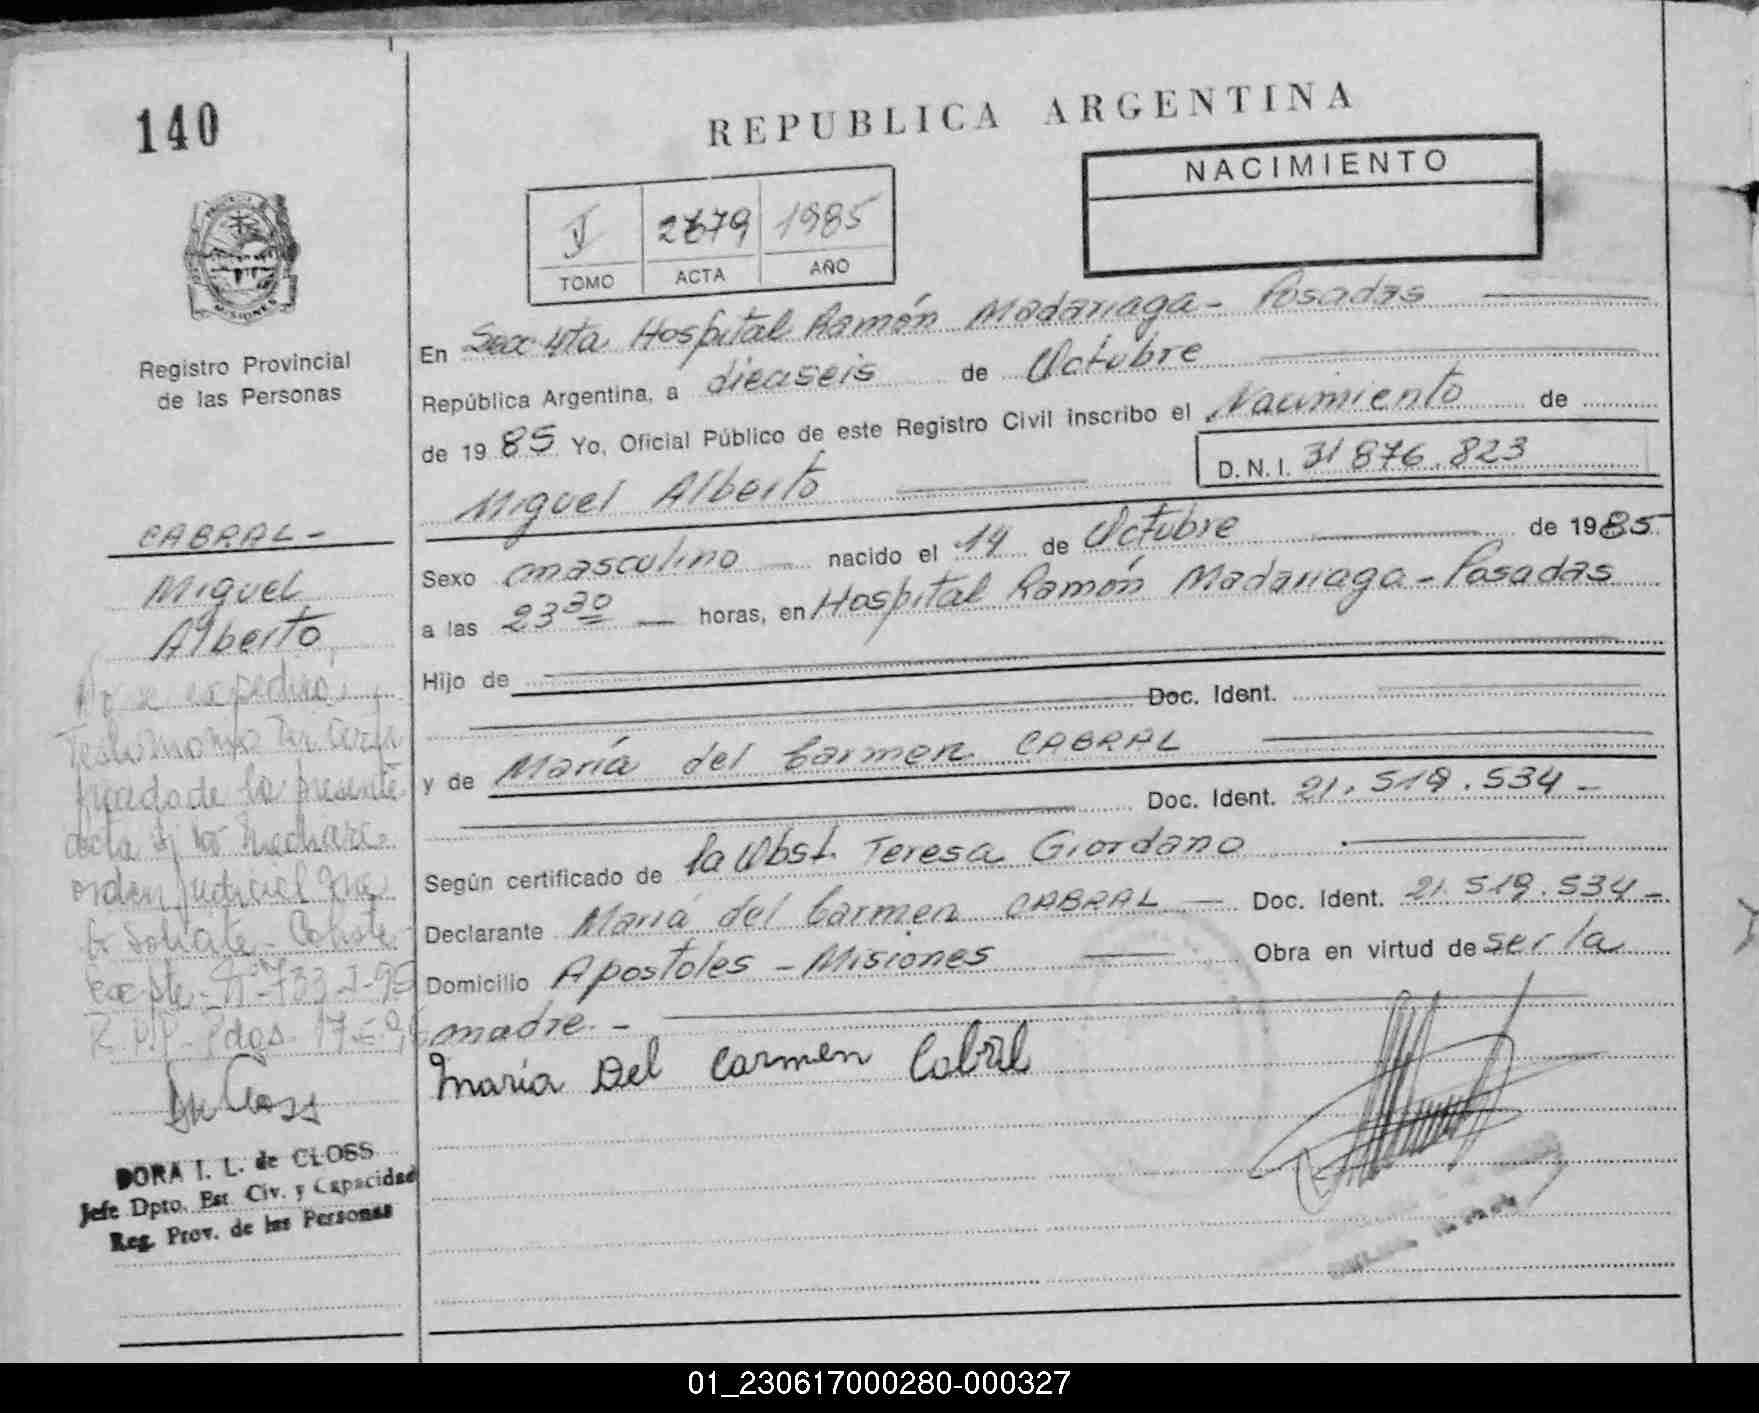 140
REPUBLICA ARGENTINA
NACIMIENTO
V 2679 1985
TOMO ACTA AÑO
MISIONES
Registro Provincial
de las Personas
En Secc 4ta Hospital Ramón Madariaga - Posadas
República Argentina, a dieciseis de Octubre
de 1985 Yo, Oficial Público de este Registro Civil inscribo el Nacimiento de
D.N.I. 31 876.823
Miguel Alberto
Sexo masculino nacido el 14 de Octubre de 1985
a las 23 30 horas, en Hospital Ramón Madariaga - Posadas
Hijo de
Doc. Ident.
y de María del Carmen CABRAL
Doc. Ident. 21.519.534 -
Según certificado de la Obst. Teresa Giordano
Declarante María del Carmen CABRAL Doc. Ident. 21.519.534 -
Domicilio Apostoles - Misiones Obra en virtud de ser la
madre. -
María Del Carmen Cabral
CABRAL -
Miguel
Alberto
No se expedirá
Testimonio ni Certi
ficado de la presente
acta si no mediare
orden judicial que
lo solicite - Conste
Expte - Nº 733
DORA I. L. de CLOSS
Jefe Dpto. Est. Civ. y Capacidad
Reg. Prov. de las Personas
01_230617000280-000327